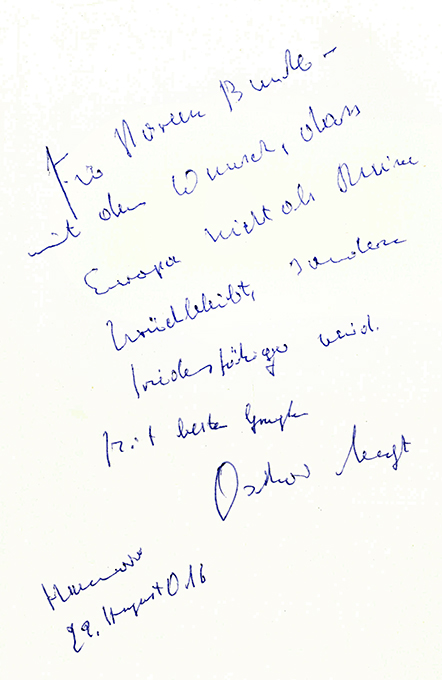 Für Herrn Bunde –
mit dem Wunsch, dass
Europa nicht als Ruine
zurückbleibt, sondern
friedensfähiger wird.
Mit besten Grüßen
Oskar Negt
Hannover
29. August 016